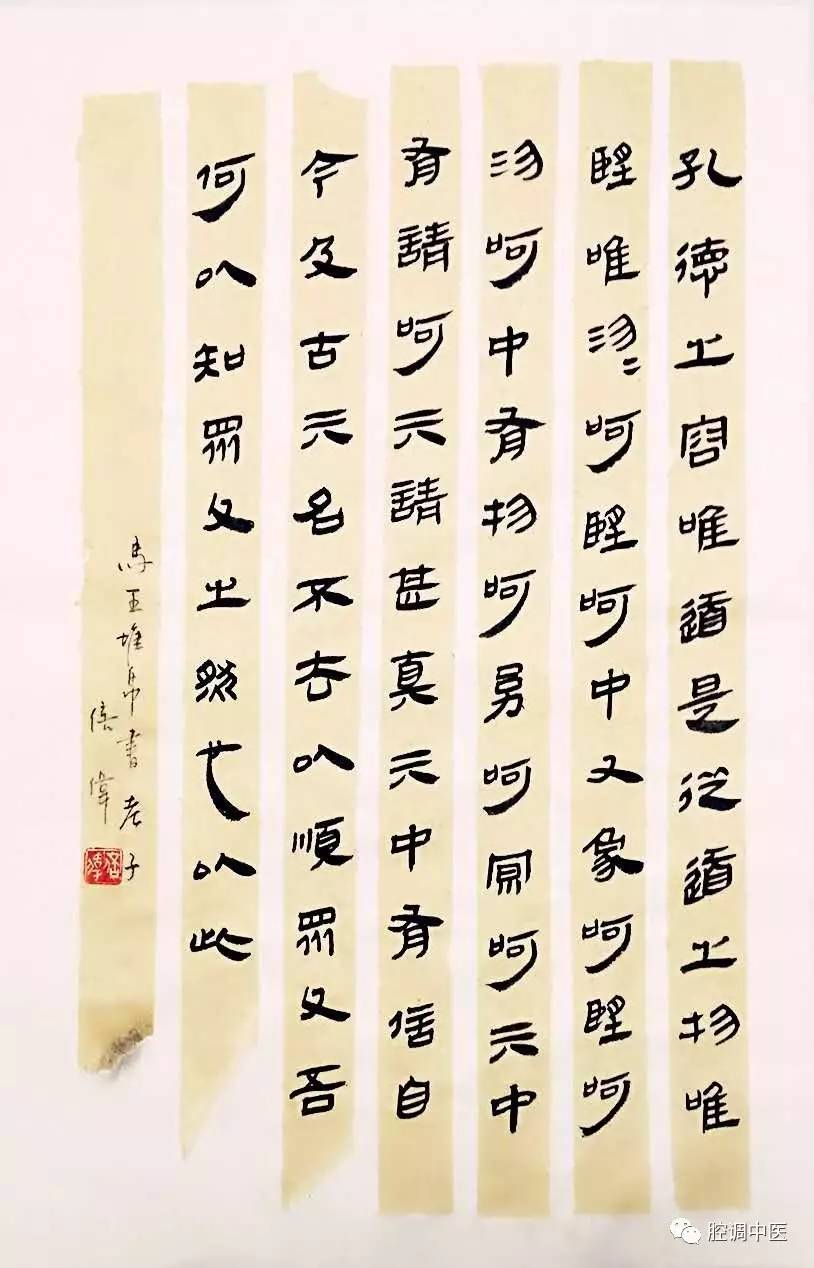 孔德之容唯道是从道之物唯
朢唯沕=呵朢呵中又象呵朢呵
沕呵中有物呵幼呵冥呵亓中
有請呵亓請甚真亓中有信自
今及古亓名不去以順眾父吾
何以知眾父之然也以此
馬王堆帛書老子
偉
腔调中医